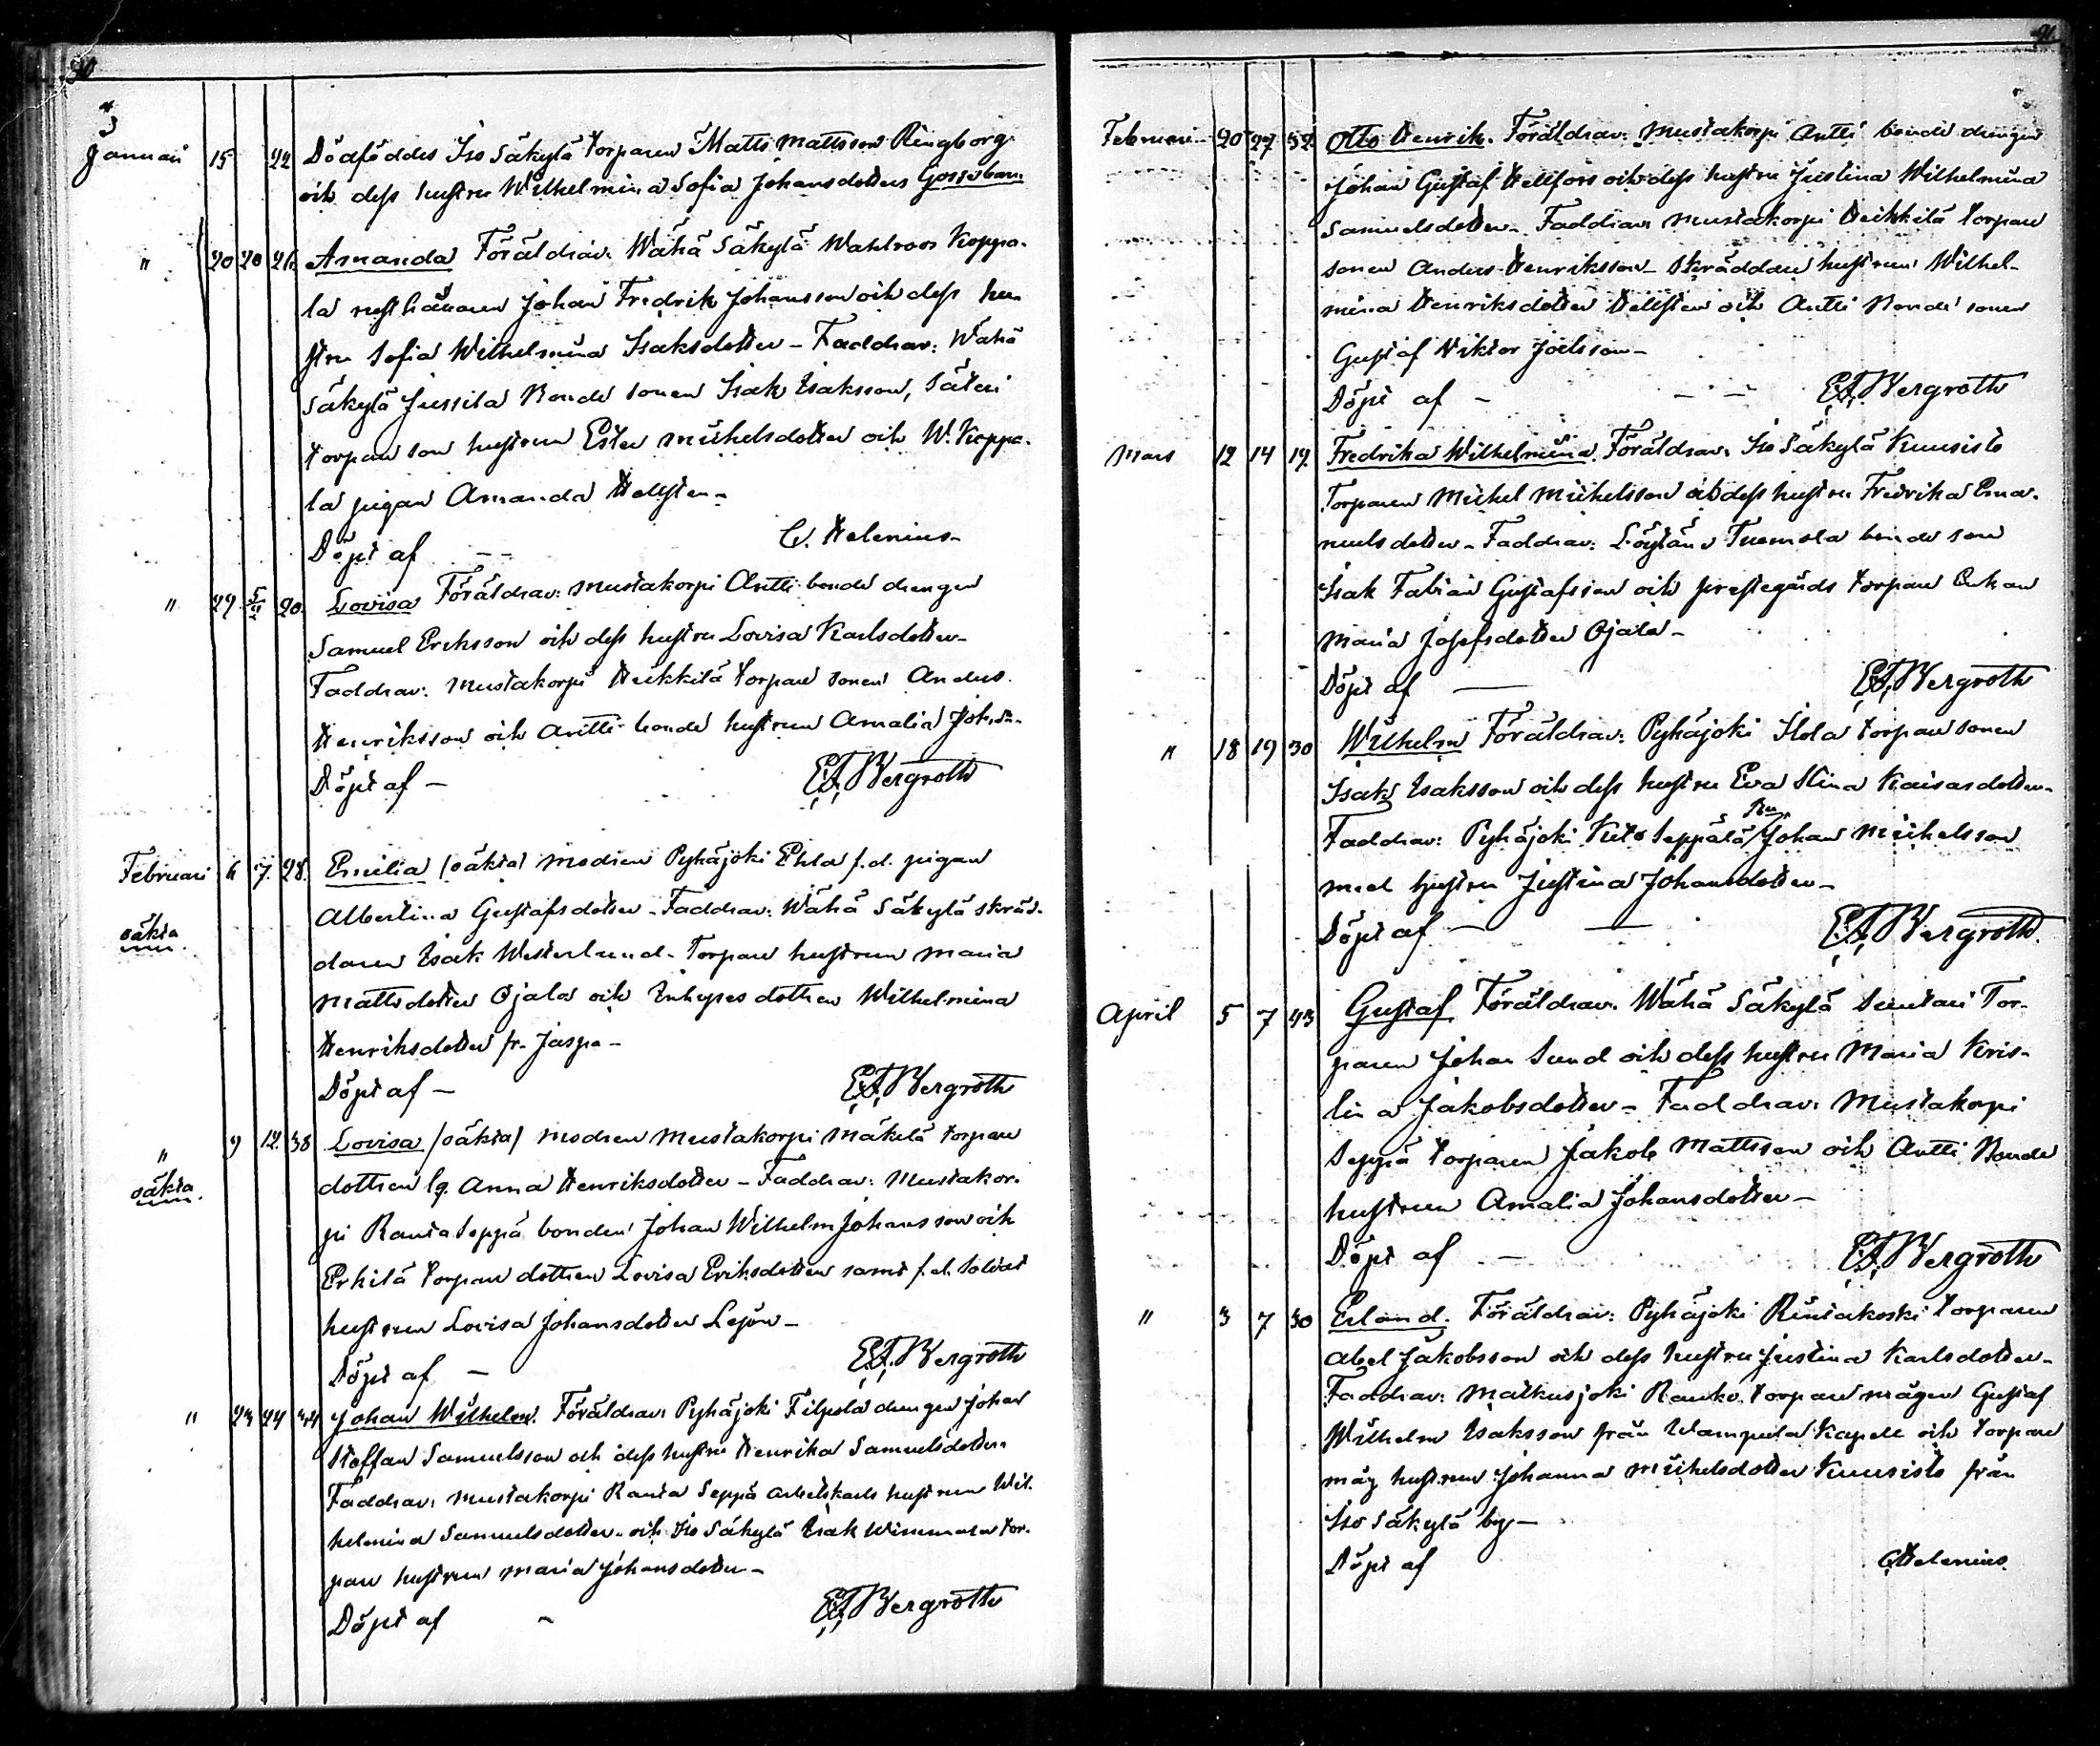 90
Januari 15 22 Dödföddes Iso Säkylä torparen Matts Mattsson Ringborg
och dess hustru Wilhelmina Sofia Johansdotters Gossebarn
" 20 20 26 Amanda Föräldrar: Wähä Säkylä Wahlroos Koppa-
la Johan Fredrik Johansson och dess hu-
stru Sofia Wilhelmina Isaksdotter – Faddrar: Wähä
Säkylä Jussila Bonde sonen Isak Isaksson, Säteri
torpare son hustrun Ester Michelsdotter och W. Koppa-
la pigan Amanda Hellsten –
Döpt af – – C. Helenius –
" 29 5/2 20. Lovisa Föräldrar: Mustakorpi Antti bonde drengen
Samuel Eriksson och dess hustru Lovisa Karlsdotter –
Faddrar: Mustakorpi Heikkilä torpare sonen Anders
Henriksson och Antti bonde hustrun Amalia Johsdr.
Döpt af – E.F. Bergroth
Februari 6 7. 28. Emilia (oäkta) modren Pyhäjoki Ehla f.d. pigan
Albertina Gustafsdotter – Faddrar: Wähä Säkylä skräd-
oäkta
daren Isak Westerlund – Torpare hustrun Maria
Mattsdotter Ojala och Inhyses dottren Wilhelmina
Henriksdotter fr. Jaspa –
Döpt af – E.F. Bergroth
" 9 12. 38 Lovisa (oäkta) modren Mustakorpi Mäkelä torpare
oäkta.
dottren lg. Anna Henriksdotter – Faddrar: Mustakor-
pi Ranta Seppä bonden Johan Wilhelm Johansson och
Erkilä torpare dottren Lovisa Eriksdotter samt f.d. Soldat
hustrun Lovisa Johansdotter Lejon –
Döpt af – E.F. Bergroth
" 23 24 34 Johan Wilhelm. Föräldrar: Pyhäjoki Filpola drengen Johan
Staffan Samuelsson och dess hustru Henrika Samuelsdotter
Faddrar: Mustakorpi Ranta Seppä arbetskarls hustrun Wil-
helmina Samuelsdotter – och Iso Säkylä Isak Wimmala tor-
pare hustrun Maria Johansdotter –
Döpt af – E.F. Bergroth
91
Februari 20 27 32. Otto Henrik. Föräldrar: Mustakorpi Antti bonde drengen
Johan Gustaf Hellfors och dess hustru Justina Wilhelmina
Samuelsdotter – Faddrar: Mustakorpi Heikkilä torpare
sonen Anders Henriksson – Skräddare hustrun Wilhel-
mina Henriksdotter Hellsten och Antti Bonde sonen
Gustaf Viktor Joelsson –
Döpt af – – – E.F. Bergroth
Mars 12 14 19. Fredrika Wilhelmina. Föräldrar: Iso Säkylä Kuusisto
Torparen Michel Michelsson och dess hustru Fredrika Ema-
nuelsdotter – Faddrar: Löytäne Tuomola bonde son
Isak Fabian Gustafsson och prestegårds torpare Enkan
Maria Josefsdotter Ojala –
Döpt af – E.F. Bergroth
" 18 19 30 Wilhelm Föräldrar: Pyhäjoki Ilola torpare sonen
Isak Isaksson och dess hustru Eva Stina Kaisasdotter –
Faddrar: Pyhäjoki Seppälä Johan Michelsson
med hustru Justina Johansdotter –
Döpt af – – E.F. Bergroth.
April 5 7 43 Gustaf Föräldrar: Wähä Säkylä Suntari Tor-
paren Johan Sund och dess hustru Maria Kris-
tina Jakobsdotter – Faddrar: Mustakorpi
Seppä torparen Jakob Mattsson och Antti Bonde
hustrun Amalia Johansdotter –
Döpt af – E.F. Bergroth
" 3 7 30 Erland. Föräldrar: Pyhäjoki Rintakoski torparen
Abel Jakobsson och dess hustru Justina Karlsdotter –
Faddrar: Matkusjoki torpare mågen Gustaf
Wilhelm Isaksson från Wampula Kapell och torpare
måg hustrun Johanna Michelsdotter Kuusisto från
Iso Säkylä by –
Döpt af C Helenius